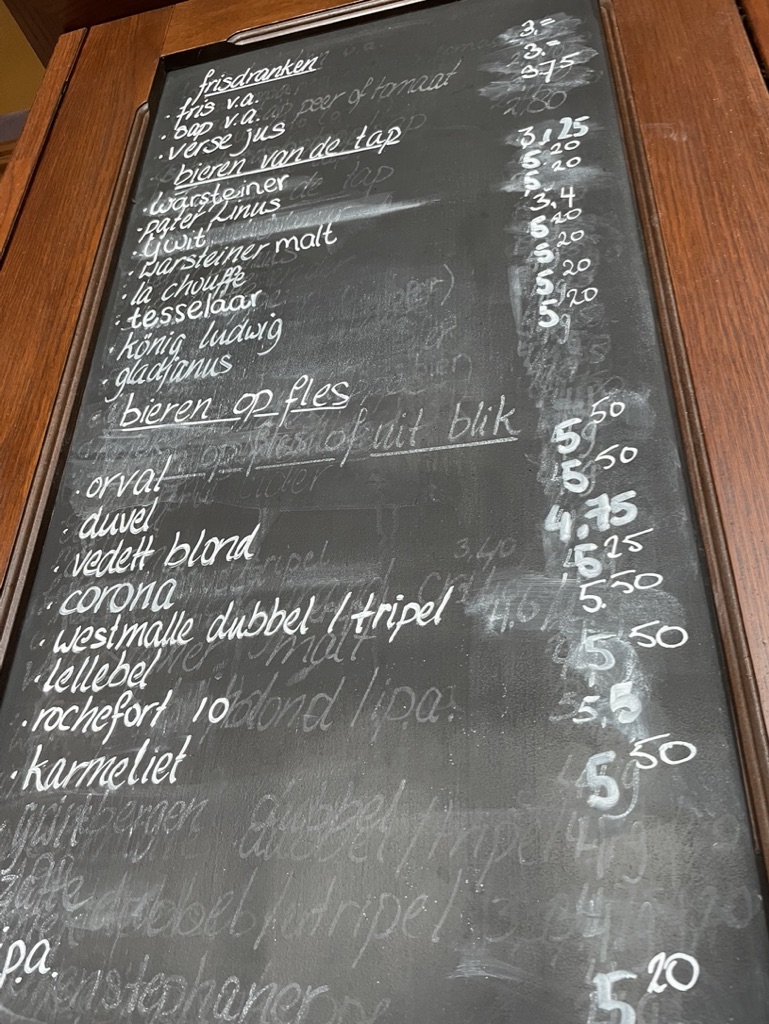 frisdranken
· fris v.a. 3,=
· sap v.a. peer of tomaat 3.=
· verse jus 3.75
bieren van de tap
· warsteiner 3,25
· pater linus 5,20
· ijwit 5,20
· warsteiner malt 3,4
· la chouffe 5,20
· tesselaar 5,20
· könig ludwig 5,20
· gladjanus 5,20
bieren op fles
op fles of uit blik
· orval 5 50
· duvel 5 50
· vedett blond 4,75
· corona 5 25
· westmalle dubbel / tripel 5.50
· lellebel 5 50
· rochefort 10 5,5
· karmeliet 5 50
dubbel / tripel
dubbel / tripel
i.p.a. 5 20